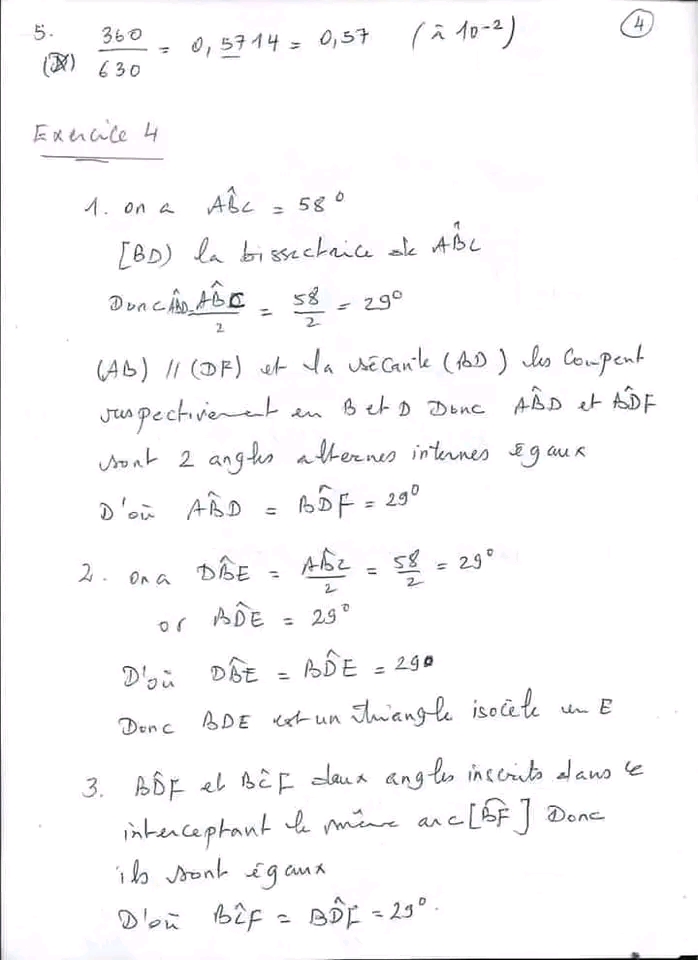 5. 360/630 = 0,5714 = 0,57 (à 10⁻²) 4
Exercice 4
1. on a AB̂C = 58°
[BD) la bissectrice de AB̂C
Donc AB̂D = AB̂C/2 = 58/2 = 29°
(AB) // (DF) et la sécante (BD) les coupent
respectivement en B et D Donc AB̂D et BD̂F
sont 2 angles alternes internes égaux
D'où AB̂D = BD̂F = 29°
2. on a DB̂E = AB̂C/2 = 58/2 = 29°
or BD̂E = 29°
D'où DB̂E = BD̂E = 29°
Donc BDE est un triangle isocèle en E
3. BD̂F et BĈF deux angles inscrits dans C
interceptant le même arc [BF] Donc
ils sont égaux
D'où BĈF = BD̂F = 29°.